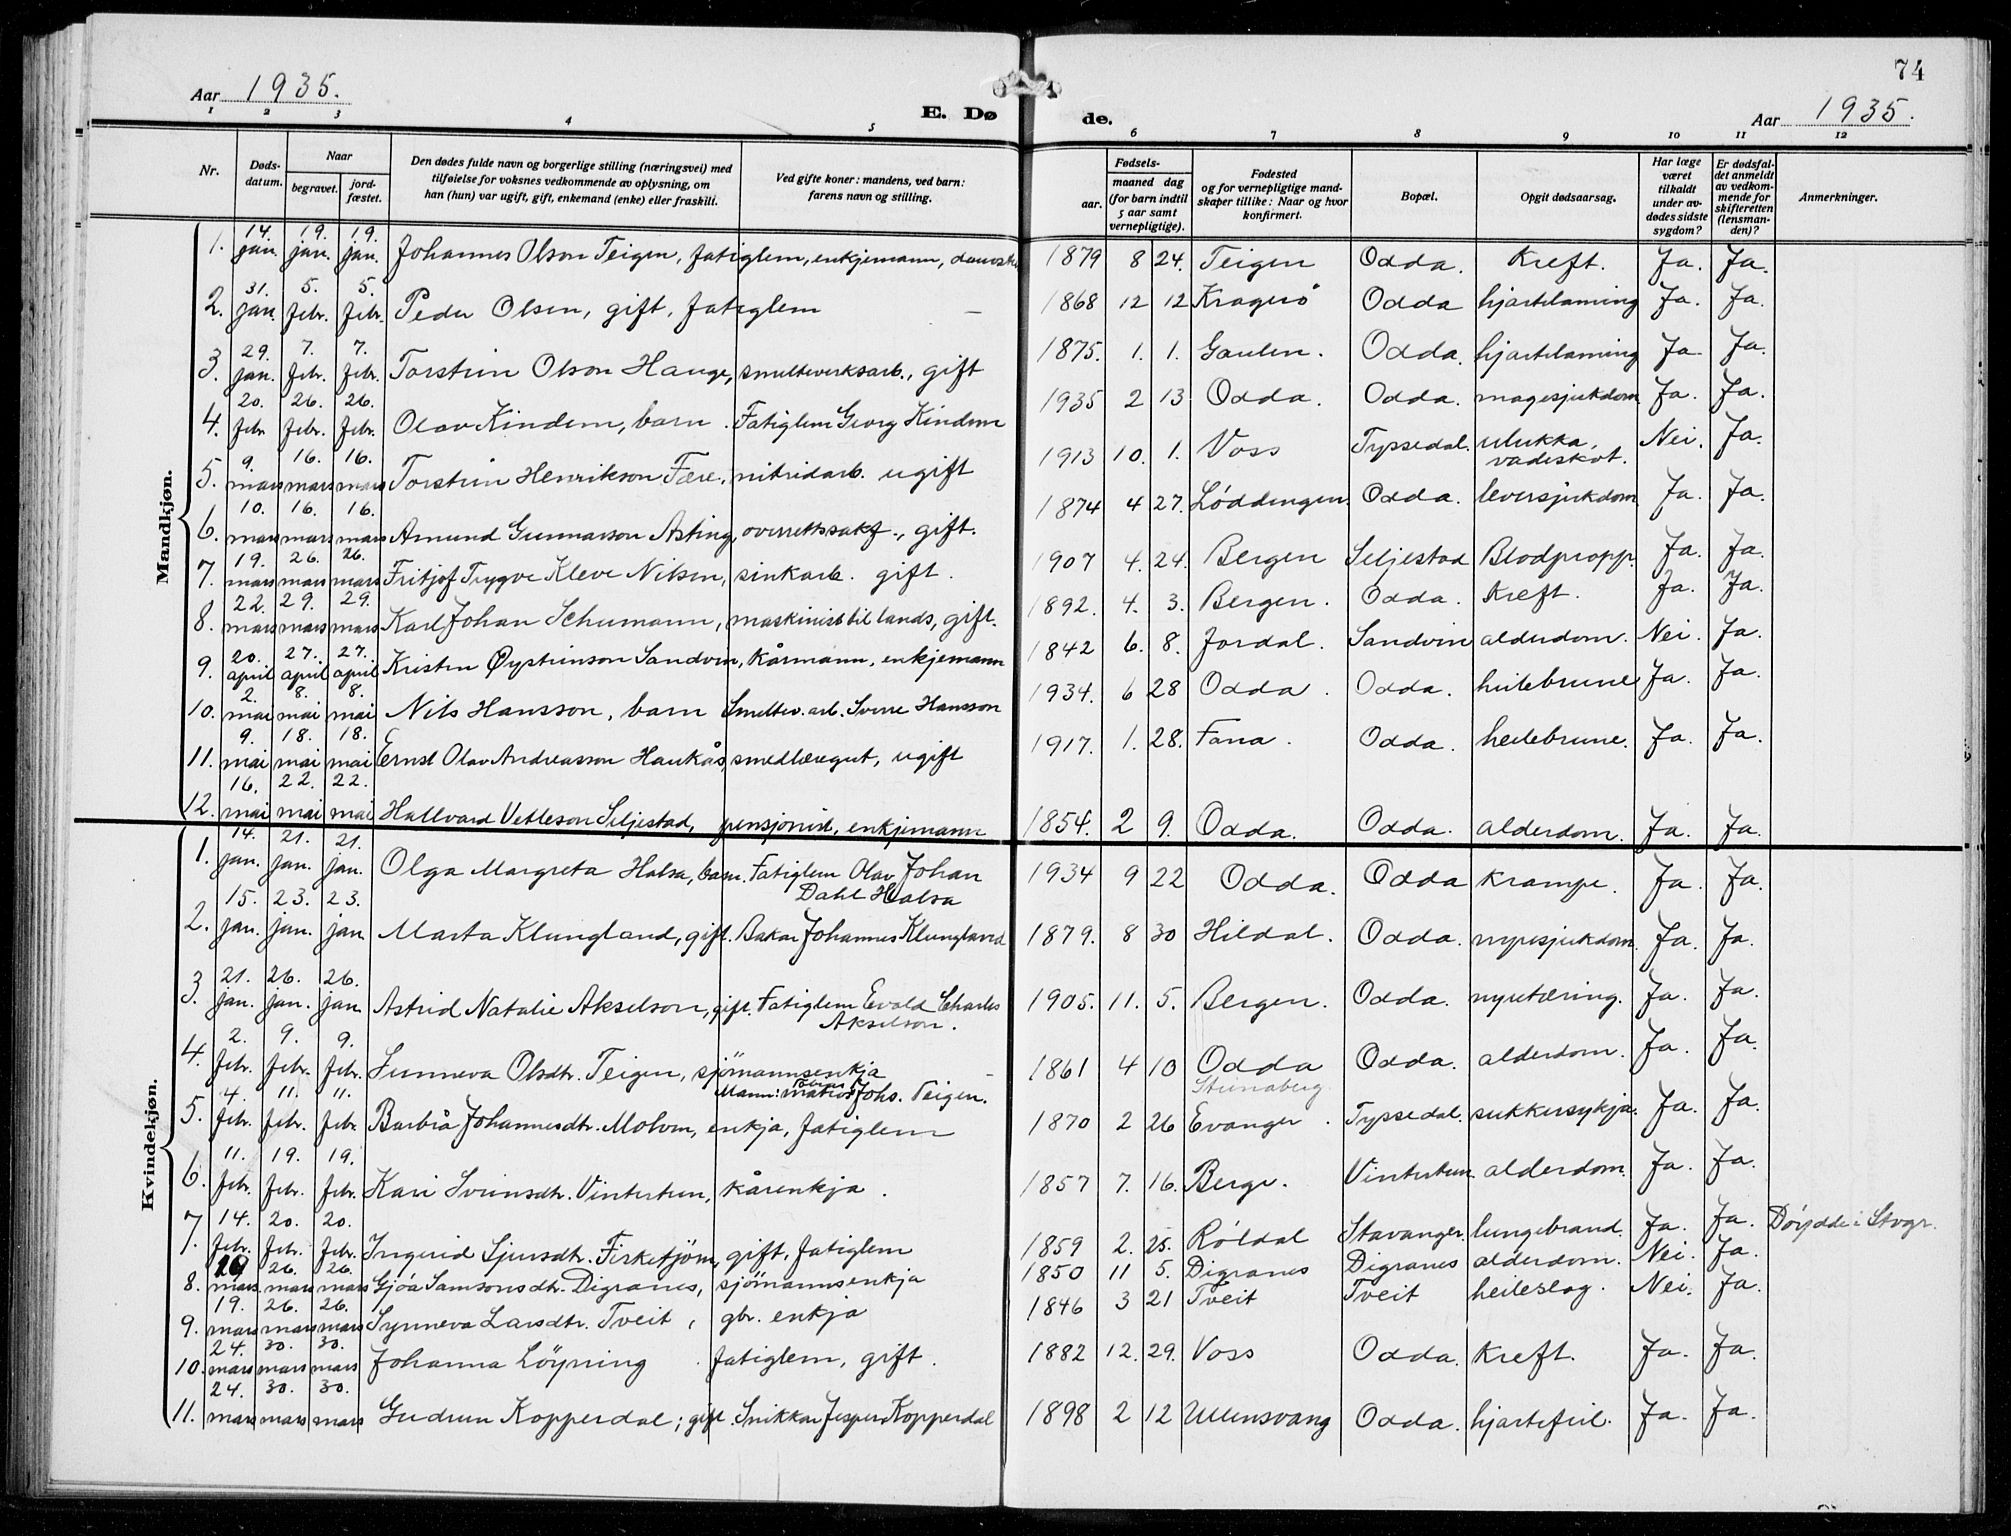 74
Aar 1935.
E. Døde.
Aar 1935.
1 2 3 4 5 6 7 8 9 10 11 12
Nr.
Døds-datum.
Naar
begravet.
jord-fæstet.
Den dødes fulde navn og borgerlige stilling (næringsvei) med
tilføielse for voksnes vedkommende av oplysning, om
han (hun) var ugift, gift, enkemand (enke) eller fraskilt.
Ved gifte koner: mandens, ved barn:
farens navn og stilling.
Fødsels-
aar.
maaned dag
(for barn indtil
5 aar samt
vernepligtige).
Fødested
og for vernepligtige mand-
skaper tillike: Naar og hvor
konfirmert.
Bopæl.
Opgit dødsaarsag.
Har læge
været
tilkaldt
under av-
dødes sidste
sygdom?
Er dødsfal-
det anmeldt
av vedkom-
mende for
skifteretten
(lensman-
den)?
Anmerkninger.
Mandkjøn.
1. 14. jan. 19. jan. 19. jan. Johannes Olson Teigen, fatiglem, enkjemann, 1879 8 24. Teigen Odda. Kreft. Ja. Ja.
2. 31. jan. 5. febr. 5. febr. Peder Olsen, gift, fatiglem — 1868 12 12 Kragerö Odda hjartelaming Ja. Ja.
3. 29. jan. 7. febr. 7. febr. Torstein Olson Hauge, smelteverksarb., gift 1875. 1. 1. Gaulen. Odda. hjartelaming Ja. Ja.
4. 20. febr. 26. febr. 26. febr. Olav Kindem, barn. Fatiglem Georg Kindem 1935 2 13 Odda. Odda. magesjukdom Ja. Ja.
5. 9. mars 16. mars 16. mars Torstein Henrikson Fære, nitridarb. ugift 1913 10. 1. Voss Tyssedal. ulukka, vådeskot. Nei. Ja.
6. 10. mars 16. mars 16. mars Amund Gunnarson Asting, overrettssakf., gift. 1874 4 27. Løddingen. Odda. leversjukdom Ja. Ja.
7. 19. mars 26. mars 26. mars Fritjof Trygve Kleve Nilsen, sinkarb. gift. 1907 4. 24. Bergen Seljestad Blodpropp. Ja. Ja.
8. 22. mars 29. mars 29. mars Karl Johan Schumann, maskinist til lands, gift. 1892. 4. 3. Bergen. Odda. Kreft. Ja. Ja.
9. 20. april 27. april 27. april Kristen Øysteinson Sandvin, kårmann, enkjemann 1842 6. 8. Jordal. Sandvin alderdom. Nei. Ja.
10. 2. mai 8. mai 8. mai Nils Hansson, barn Smeltev. arb. Sverre Hansson 1934. 6 28 Odda. Odda. heilebrune Ja. Ja.
11. 9. mai 18. mai 18. mai Ernst Olav Andreasson Haukås, smedlæregut, ugift 1917. 1. 28. Fana. Odda. heilebrune. Ja. Ja.
12. 16. mai 22. mai 22. mai Hallvard Vetleson Seljestad, pensjonist, enkjemann 1854. 2 9. Odda. Odda. alderdom. Ja. Ja.
Kvindekjøn.
1. 14. jan. 21. jan. 21. jan. Olga Margreta Halsa, barn. Fatiglem Olav Johan Dahl Halsa 1934 9 22 Odda. Odda krampe. Ja. Ja.
2. 15. jan. 23. jan. 23. jan. Marta Klungland, gift. Bakar Johannes Klungland 1879. 8 30 Hildal. Odda. nyresjukdom. Ja. Ja.
3. 21. jan. 26. jan. 26. jan. Astrid Natalie Akselson, gift. Fatiglem Evald Charles Akselson. 1905. 11. 5. Bergen. Odda. nyretæring. Ja. Ja.
4. 2. febr. 9. febr. 9. febr. Sunneva Olsdtr. Teigen, sjömannsenkja — 1861 4 10 Odda Odda. alderdom. Ja. Ja.
Mann: Johs. Teigen.
Steinaberg
5. 4. febr. 11. febr. 11. febr. Barbrå Johannesdtr. Molven, enkja, fatiglem 1870 2 26 Evanger. Tyssedal. sukkersykja. Ja. Ja.
6. 11. febr. 19. febr. 19. febr. Kari Sveinsdtr. Vintertun, kårenkja. 1857 7. 16. Berge. Vintertun alderdom. Ja. Ja.
7. 14. febr. 20. febr. 20. febr. Ingerid Sjursdtr. Fisketjöm, gift, fatiglem 1859 2. 25. Røldal Stavanger. lungebrand. Ja. Ja. Døydde i Stvgr.
8. 20 mars 26. mars 26. mars Gjøa Samsonsdtr. Digranes, sjömannsenkja 1850 11 5. Digranes Digranes alderdom. Nei. Ja.
9. 19. mars 26. mars 26. mars Synneva Larsdtr. Tveit, gbr. enkja 1846 3 21 Tveit Tveit heileslag. Nei. Ja.
10. 24. mars 30. mars 30. mars Johanna Löyning. fatiglem, gift. 1882 12. 29. Voss Odda. Kreft. Ja. Ja.
11. 24. mars 30. mars 30. mars Gudrun Kopperdal; gift. Snikkar Jesper Kopperdal 1898 2 12 Ullensvang Odda. hjartefeil. Ja. Ja.